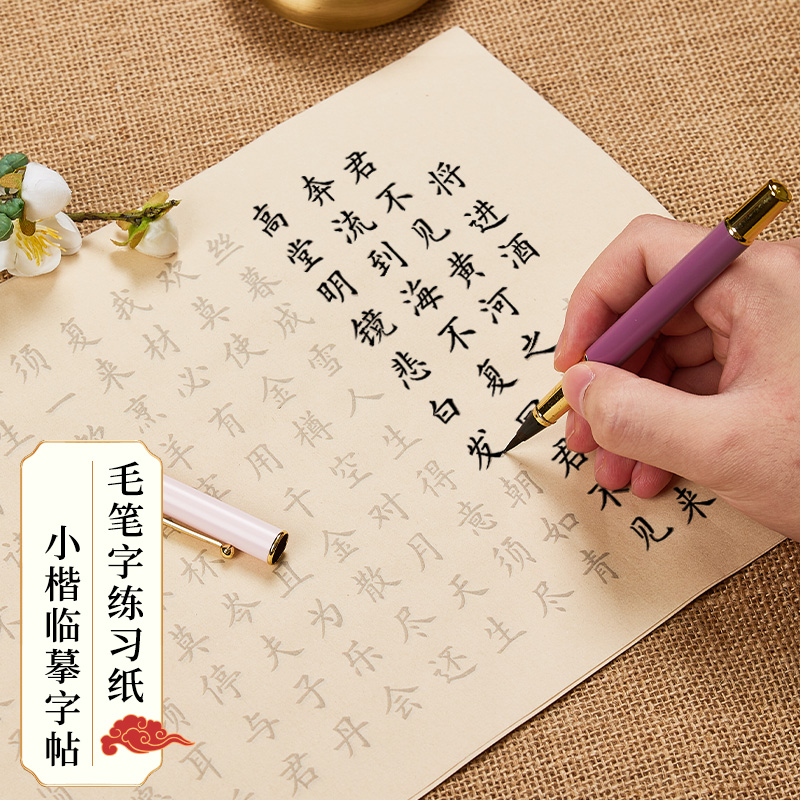 将进酒
君不见黄河之来
奔流到海不复回君不见
高堂明镜悲白发朝如青
丝暮成雪人生得意须尽
欢莫使金樽空对月天生
我材必有用千金散尽还
复来烹羊宰且为乐会
须一饮杯岑夫子丹
生莫停与君
耳
毛笔字练习纸
小楷临摹字帖